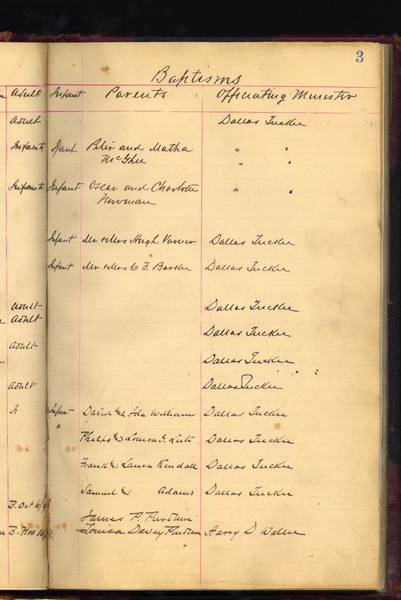 3
Baptisms
Adult Infant Parents Officiating Minister
Adult Dallas Tucker
Infant Peter and Martha " "
McGhee
Infant Oscar and Charlotte " "
Newman
Infant Mr & Mrs Hugh Dallas Tucker
Infant Mr & Mrs C F. Barker Dallas Tucker
Adult Dallas Tucker
Adult Dallas Tucker
Adult Dallas Tucker
Adult Dallas Tucker
A Infant David & Ida Williams Dallas Tucker
" Phelps & Louisa Dallas Tucker
Frank & Laura Kendall Dallas Tucker
Samuel & Adams Dallas Tucker
B. Oct
James P.
B. Nov Louisa Harry D